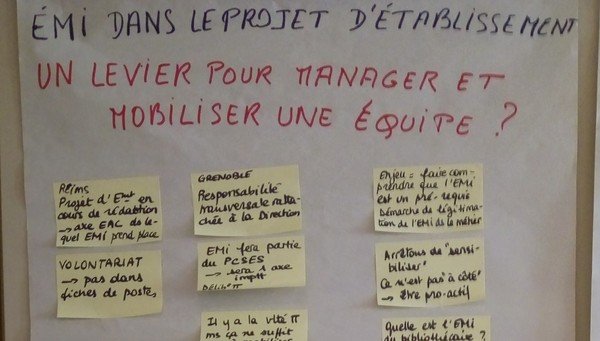 ÉMI DANS LE PROJET D'ÉTABLISSEMENT
UN LEVIER POUR MANAGER ET
MOBILISER UNE ÉQUIPE ?
REIMS
Projet d'Emt en
cours de rédaction
→ axe EAC de le-
quel EMI prend place
VOLONTARIAT
→ pas dans
fiches de postes
GRENOBLE
Responsabilité
transversale ratta-
chée à la Direction
EMI fera partie
du PCSES
→ sera 1 axe
impt
Il y a la vlté π
ms ça ne suffit
Enjeu = faire com-
prendre que l'EMI
est un pré-requis
Démarche de légitima-
tion de l'EMI ds le métier
Arrêtons de "sensi-
biliser"
Ce n'est pas "à côté"
→ être pro-actif
Quelle est l'EMI
du bibliothécaire ?